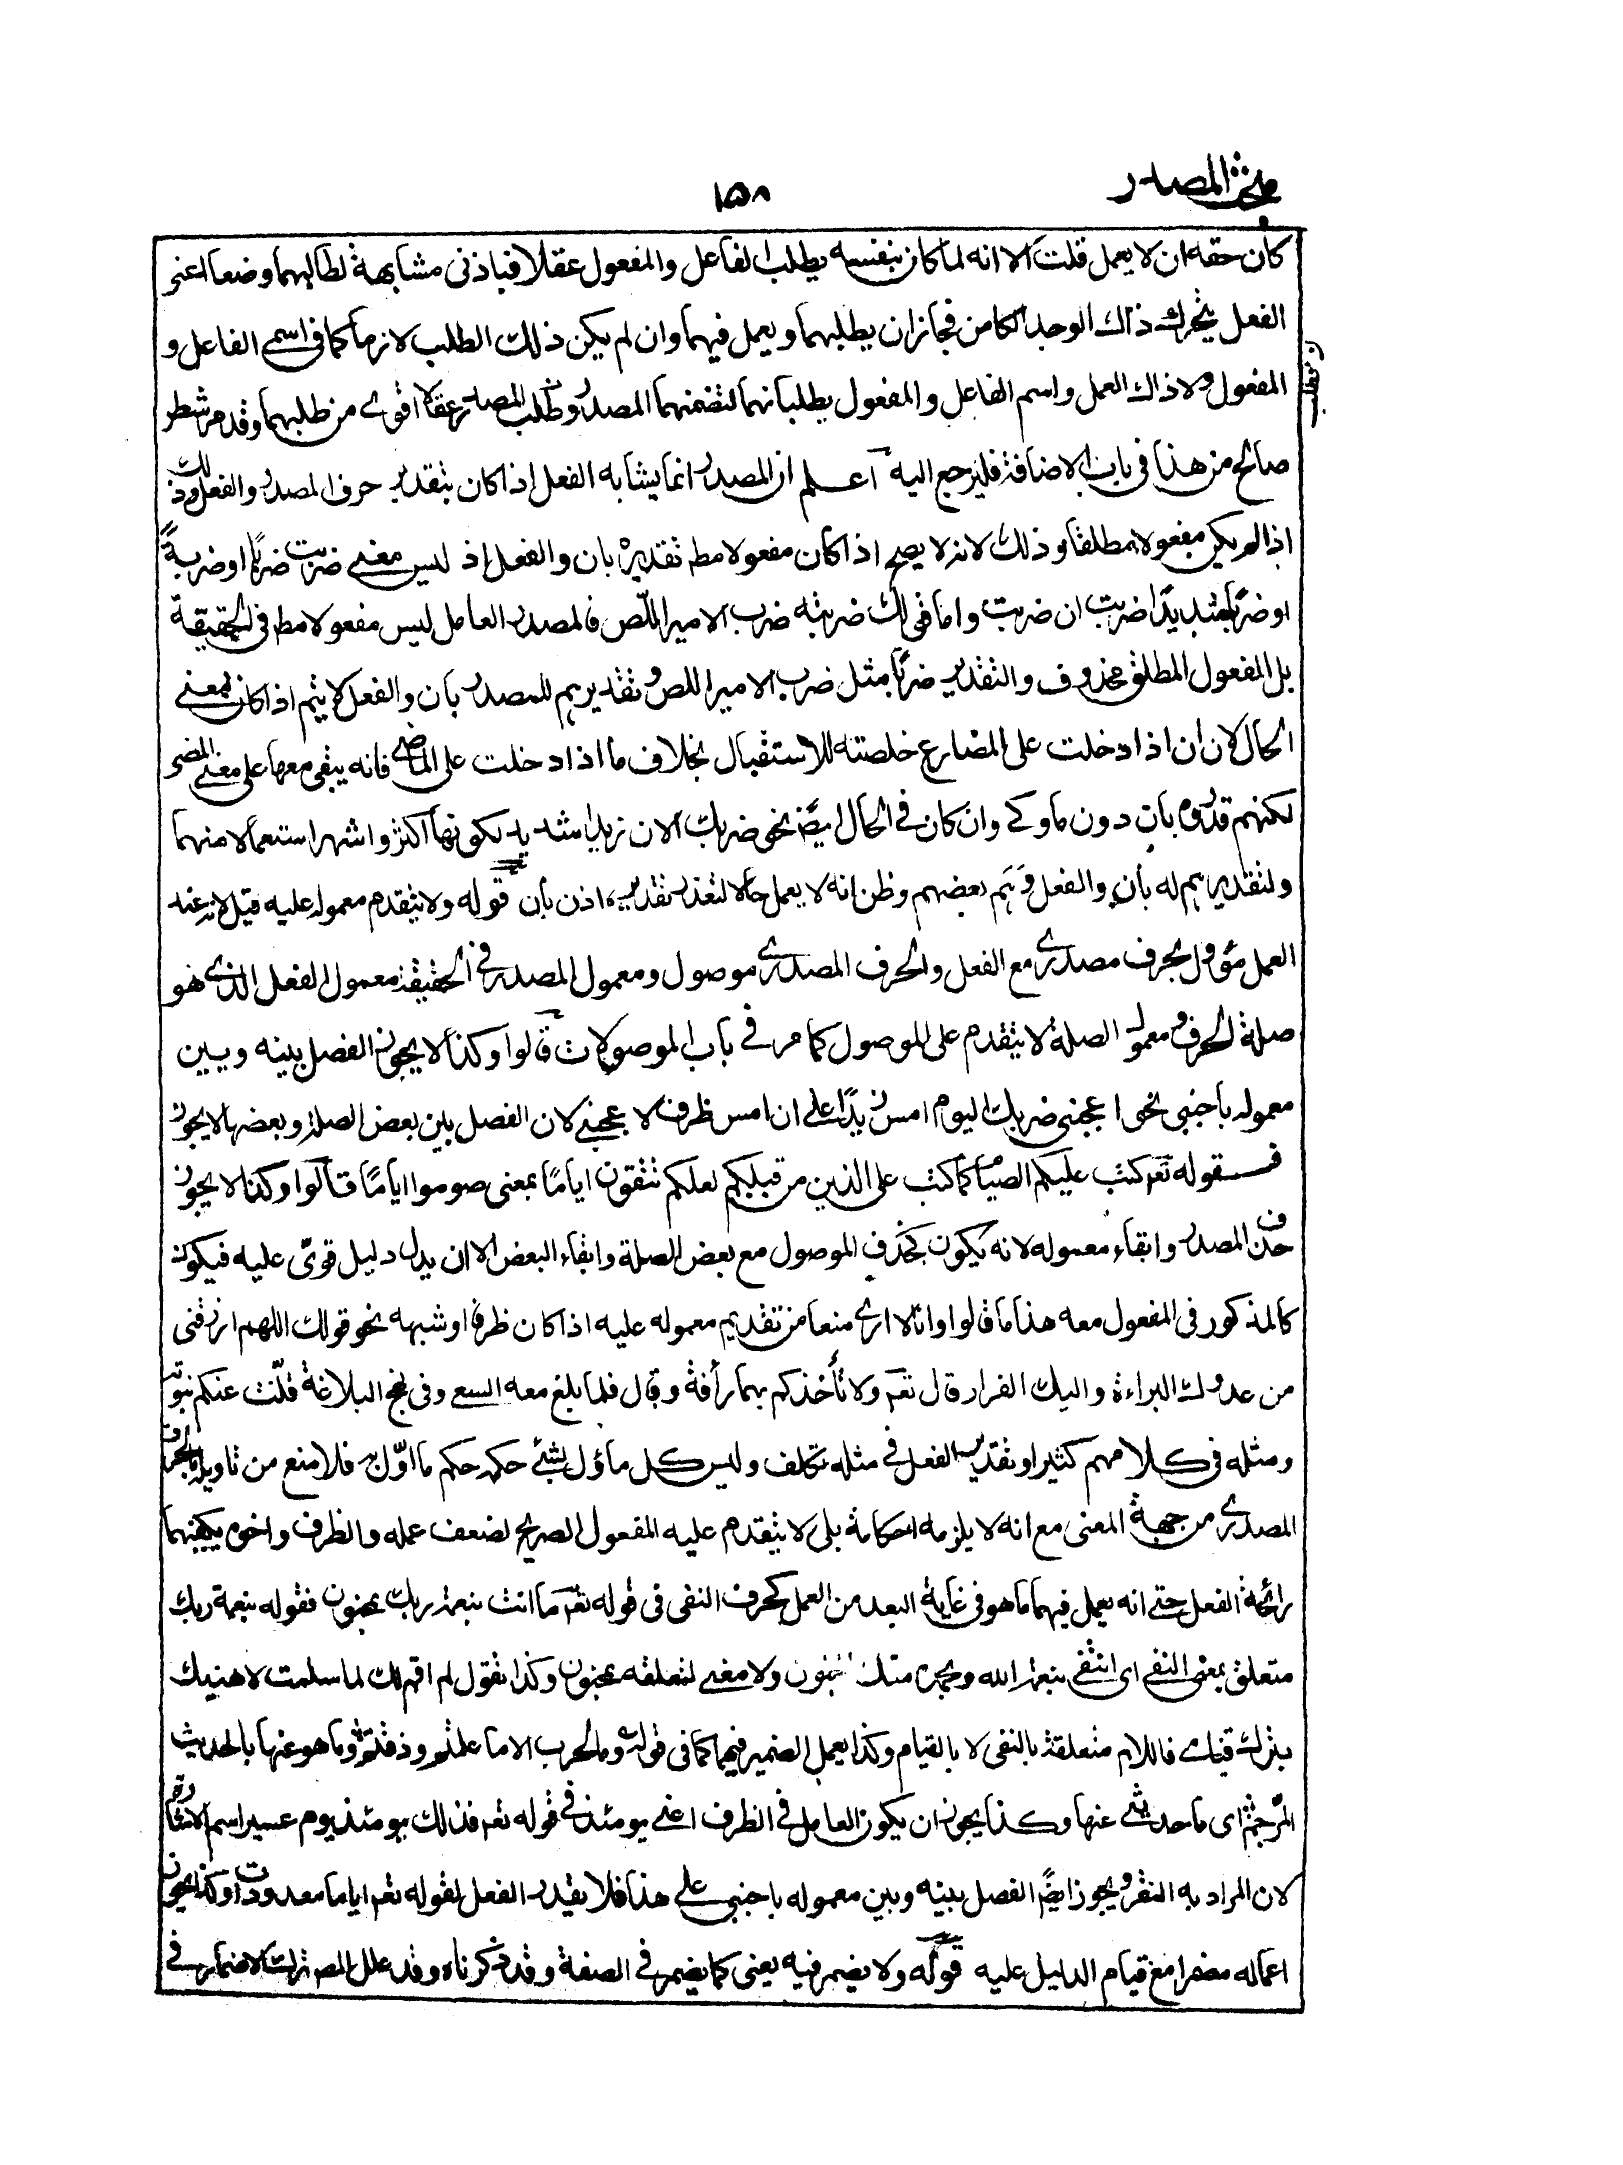 مبحث المصدر
١٥٨
كان حقه ان لا يعمل قلت الا انه لما كان بنفسه يطلب الفاعل والمفعول عقلا فباذنى مشابهة لطالبهما وضعا اعنى
الفعل يتحرك ذاك الوجد الكامن فجاز ان يطلبهما ويعمل فيهما وان لم يكن ذلك الطلب لازما كما فى اسمى الفاعل و
المفعول ولا ذاك العمل واسم الفاعل والمفعول يطلبانهما لتضمنهما المصدر وطلب المصدر عقلا اقوى من طلبهما وقد مر شطر
صالح من هذا فى باب الاضافة فليرجع اليه اعلم ان المصدر انما يشابه الفعل اذا كان بتقدير حرف المصدر والفعل وذلك
اذا لم يكن مفعولا مطلقا وذلك لانه لا يصح اذا كان مفعولا مط تقديره بان والفعل اذ ليس معنى ضربت ضربا او ضربة
او ضربا شديدا ضربت ان ضربت واما فى لك ضربته ضرب الامير اللص فالمصدر العامل ليس مفعولا مط فى الحقيقة
بل المفعول المطلق محذوف والتقدير ضربا مثل ضرب الامير اللص وتقديرهم للمصدر بان والفعل لا يتم اذا كان بمعنى
الحال لان ان اذا دخلت على المضارع خلصته للاستقبال بخلاف ما اذا دخلت على الماضى فانه يبقى معها على معنى المضى
لكنهم قدروه بان دون ما وكى وان كان فى الحال ايضا نحو ضربك الان زيدا شديد لكونها اكثر واشهر استعمالا منهما
ولتقديرهم له بان والفعل وهم بعضهم وظن انه لا يعمل حالا لتعذر تقديره اذن بان قوله ولا يتقدم معموله عليه قيل لانه عند
العمل مؤول بحرف مصدرى مع الفعل والحرف المصدرى موصول ومعمول المصدر فى الحقيقة معمول الفعل الذى هو
صلة الحرف ومعمول الصلة لا يتقدم على الموصول كما مر فى باب الموصولات قالوا وكذا لا يجوز الفصل بينه وبين
معموله باجنبى نحو اعجبنى ضربك اليوم امس زيدا على ان امس ظرف لا عجبنى لان الفصل بين بعض الصلة وبعضها لا يجوز
فـقوله تعم كتب عليكم الصيام كما كتب على الذين من قبلكم لعلكم تتقون اياما بمعنى صوموا اياما قالوا وكذا لا يجوز
حذف المصدر وابقاء معموله لانه يكون كحذف الموصول مع بعض الصلة وابقاء البعض الا ان يدل دليل قوى عليه فيكون
كالمذكور فى المفعول معه هذا ما قالوا وانا لا ارى منعا من تقديم معموله عليه اذا كان ظرفا او شبهه نحو قولك اللهم ارزقنى
من عدوك البراءة واليك الفرار قال تعم ولا تأخذكم بهما رأفة وقال فلما بلغ معه السعى وفى نهج البلاغة قلت عنكم نبوته
ومثله فى كلامهم كثير او تقدير الفعل فى مثله تكلف وليس كل مأول بشئ حكمه حكم ما اول به فلا منع من تاويله بالحرف
المصدرى من جهة المعنى مع انه لا يلزمه احكامه بلى لا يتقدم عليه المفعول الصريح لضعف عمله والظرف واخوه يكفيهما
رائحة الفعل حتى انه يعمل فيهما ما هو فى غاية البعد من العمل كحرف النفى فى قوله تعم ما انت بنعمة ربك بمجنون فقوله بنعمة ربك
متعلق بمعنى النفى اى انتفى بنعمة الله وبحمده منك ولا معنى لتعلقه بمجنون وكذا تقول لم اقم لك لما سلمت لا هنيك
بترك قيامى فاللام متعلقة بالنفى لا بالقيام وكذا يعمل الضمير فيهما كما فى قوله وما الحرب الا ما علمتم وذقتم وما هو عنها بالحديث
المرجم اى ما حديثى عنها وكذا يجوز ان يكون العامل فى الظرف اعنى يومئذ فى قوله تعم فذلك يومئذ يوم عسير اسم الاشارة
لان المراد به النقر ويجوز ايضا الفصل بينه وبين معموله باجنبى على هذا فلا يقدر الفعل لقوله تعم اياما معدودات وكذا يجوز
اعماله مضمرا مع قيام الدليل عليه قوله ولا يضمر فيه يعنى كما يضمر فى الصفة وقد ذكرناه وقد علل المص ترك الاضمار فى